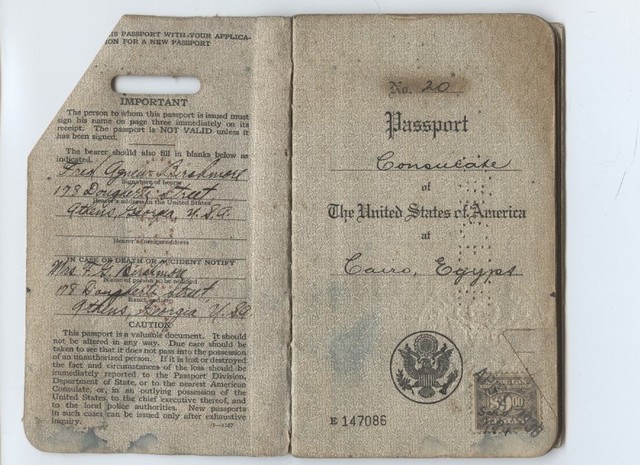 IS PASSPORT WITH YOUR APPLICA-
ION FOR A NEW PASSPORT
IMPORTANT
The person to whom this passport is issued must
sign his name on page three immediately on its
receipt. The passport is NOT VALID unless it
has been signed.
The bearer should also fill in blanks below as
indicated.
Fred Agnew Birchmore
Signature of bearer
178 Dougherty Street
Bearer's address in the United States
Athens, Georgia, U.S.A.
Bearer's foreign address
IN CASE OF DEATH OR ACCIDENT NOTIFY
Mrs. F. A. Birchmore
Name of person to be notified
178 Dougherty Street,
Athens, Georgia U.S.A.
CAUTION
This passport is a valuable document. It should
not be altered in any way. Due care should be
taken to see that it does not pass into the possession
of an unauthorized person. If it is lost or destroyed
the fact and circumstances of the loss should be
immediately reported to the Passport Division,
Department of State, or to the nearest American
Consulate, or, in an outlying possession of the
United States, to the chief executive thereof, and
to the local police authorities. New passports
in such cases can be issued only after exhaustive
inquiry.
No. 20
Passport
Consulate
of
The United States of America
at
Cairo, Egypt
E 147086